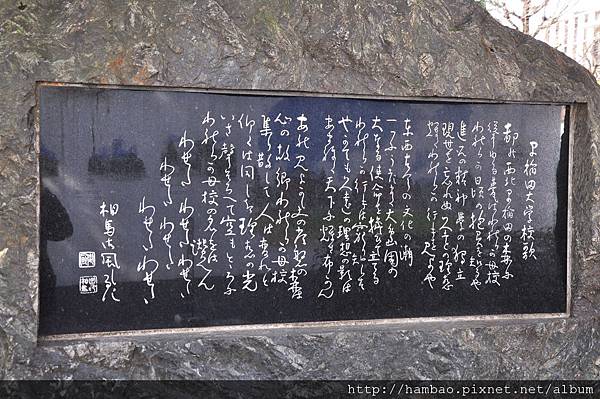 早稲田大学校歌
都の西北早稲田の森に
聳ゆる甍はわれらの母校
われらの日ごろの抱負を知るや
進取の精神学の独立
現世を忘れぬ久遠の理想
輝くわれらの行手を見よや
東西古今の文化の潮
一つに渦巻く大島国の
大なる使命を担ひて立てる
われらの行手は窮り知らず
やがても久遠の理想の影は
あまねく天下に輝き布かん
あれ見よかしこの常磐の森は
心の故郷われらの母校
集り散じて人はかはれど
仰ぐは同じき理想の光
いざ声そろへて空もとどろに
われらの母校の名をばたたへん
わせだ わせだ わせだ わせだ
わせだ わせだ わせだ
相馬御風
http://hambao.pixnet.net/album